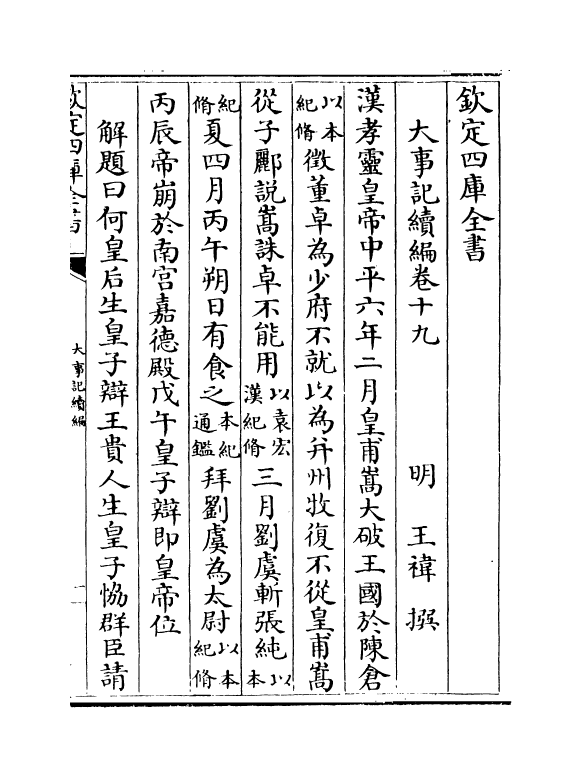 欽定四庫全書
大事記續編卷十九　明　王禕　撰
漢孝靈皇帝中平六年二月皇甫嵩大破王國於陳倉
以本紀脩徵董卓為少府不就以為并州牧復不從皇甫嵩
從子酈説嵩誅卓不能用以袁宏漢紀脩三月劉虞斬張純以本
紀脩夏四月丙午朔日有食之本紀通鑑拜劉虞為太尉以本紀脩
丙辰帝崩於南宫嘉德殿戊午皇子辯即皇帝位
解題曰何皇后生皇子辯王貴人生皇子恊群臣請
欽定四庫全書
大事記續編